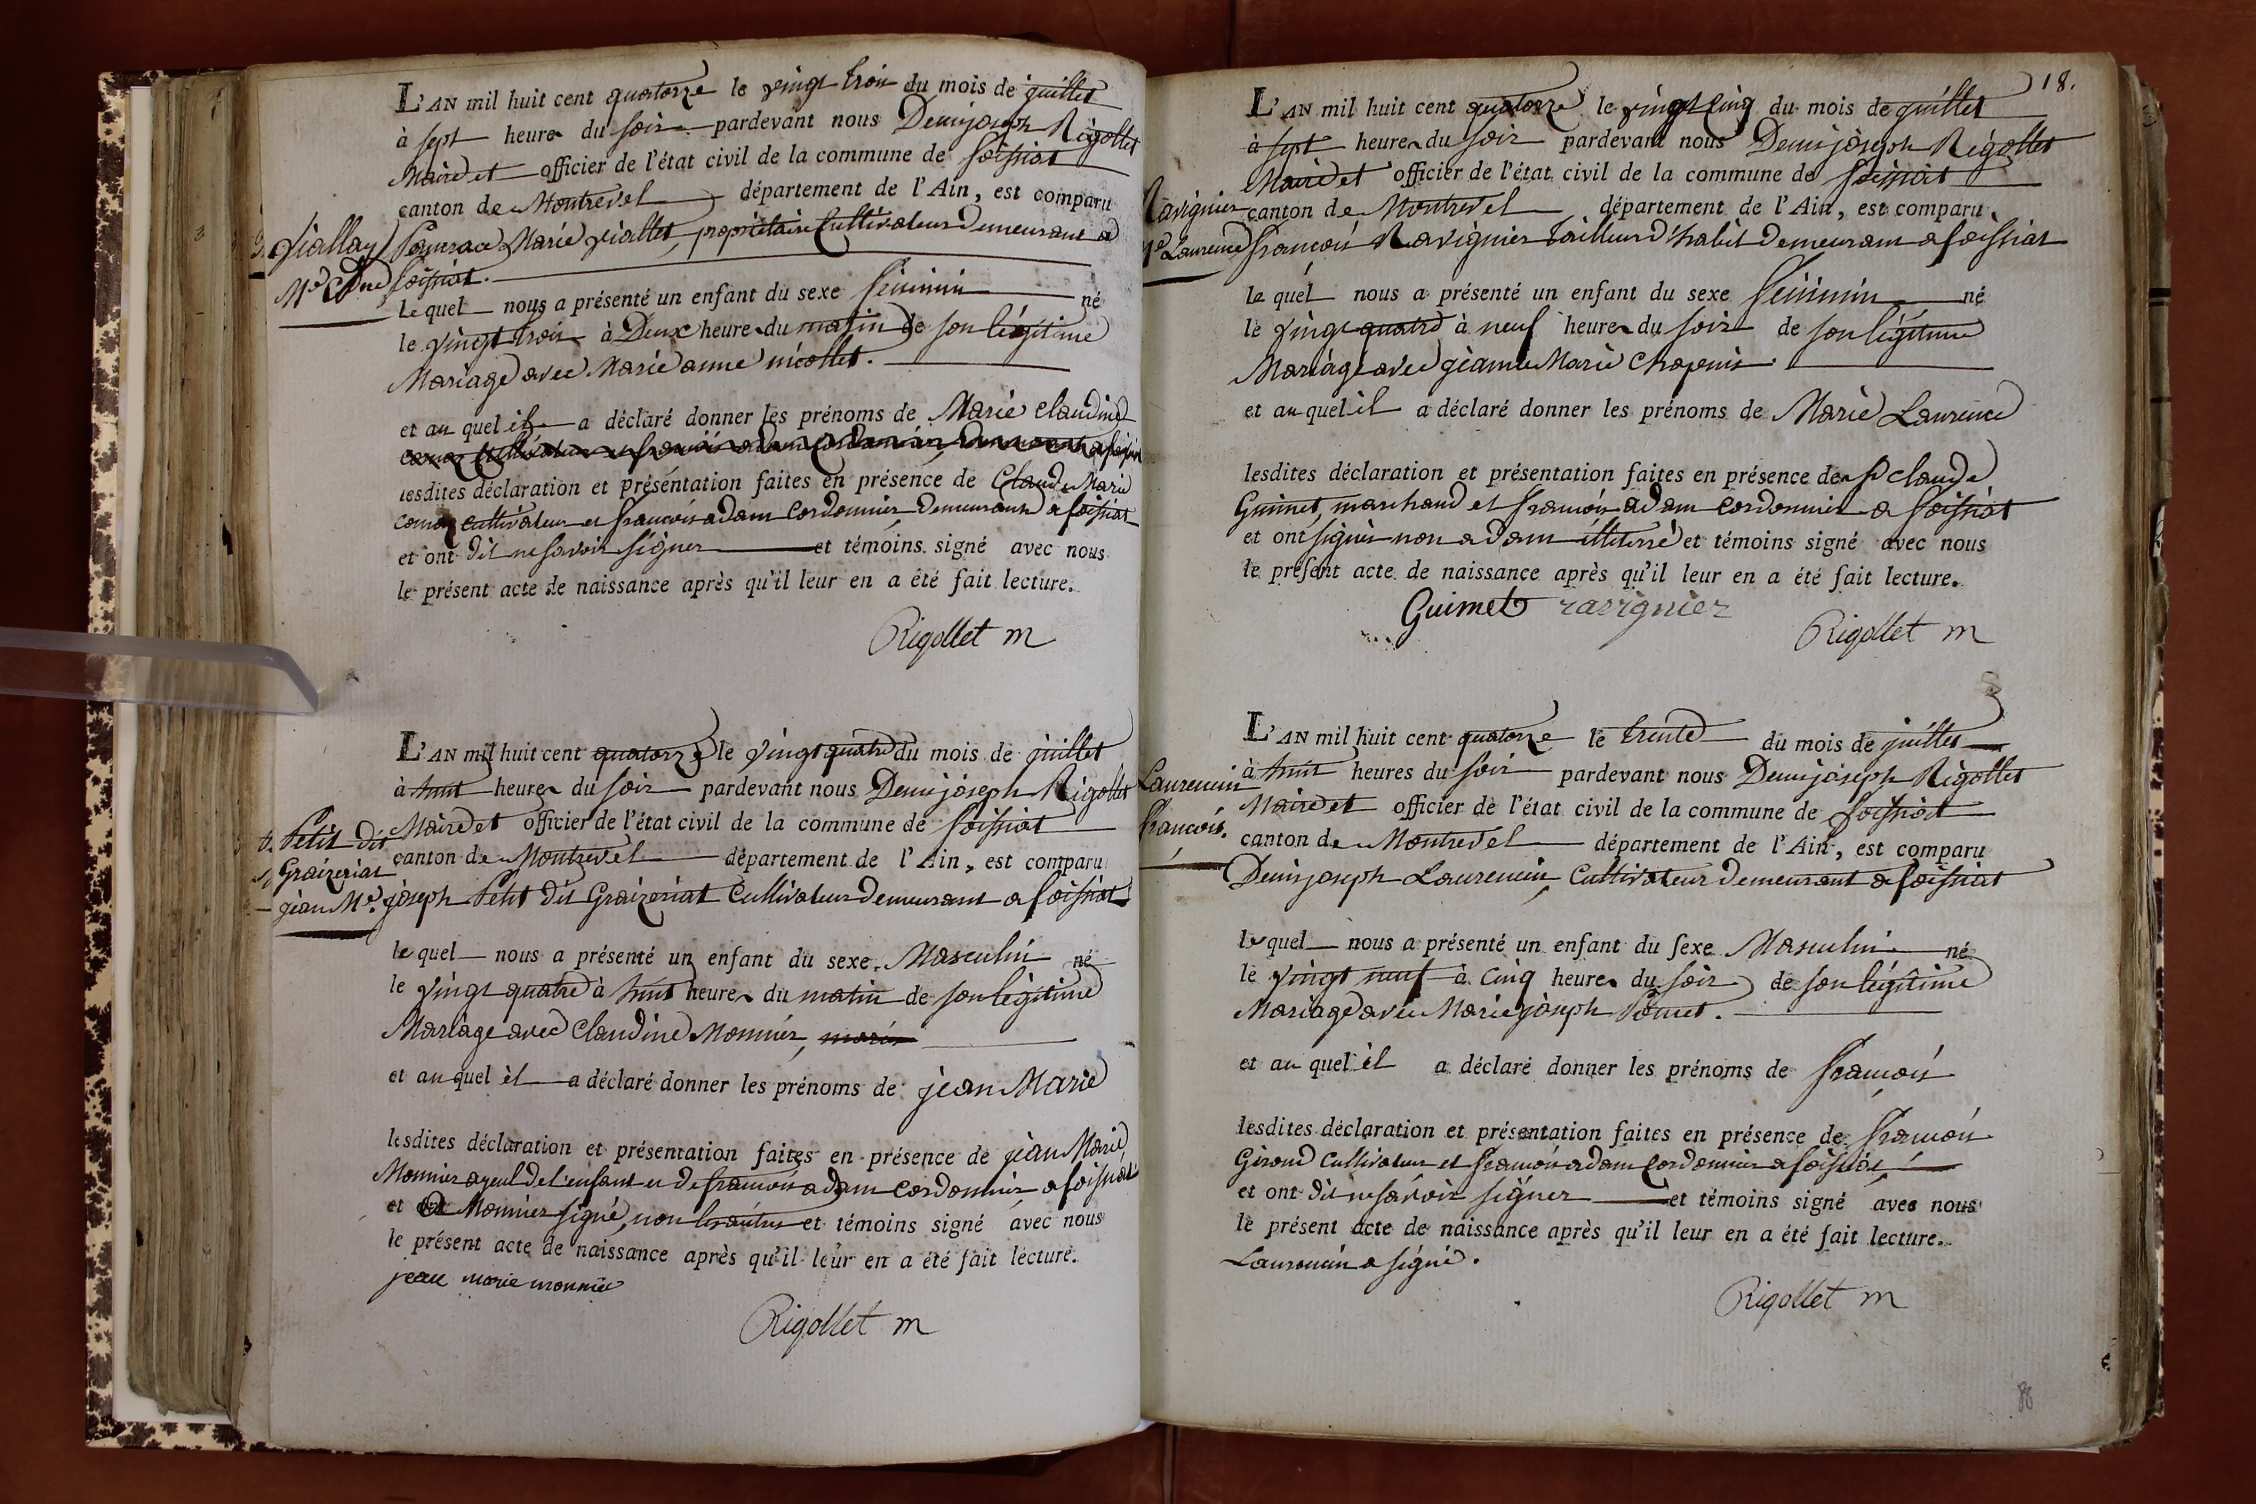 L'AN mil huit cent quatorze le vingt trois du mois de juillet
à sept heures du soir pardevant nous Denis joseph Rigollet
Maire et officier de l'état civil de la commune de foissiat
canton de Montrevel département de l'Ain, est comparu
Marie viallet, propriétaire Cultivateur Demeurant a
foissiat.
viallay
Me Cdne
le quel nous a présenté un enfant du sexe féminin né
le vingt trois à Deux heures du matin de son légitime
Mariage avec Marie anne nicollet.
et au quel il a déclaré donner les prénoms de Marie claudine
lesdites déclaration et présentation faites en présence de Claude Marie
cultivateur et francois adam Cordonnier, Demeurant a foissiat
et ont dit ne savoir signer et témoins signé avec nous
le présent acte de naissance après qu'il leur en a été fait lecture.
Rigollet m
L'AN mil huit cent quatorze le vingt quatre du mois de juillet
à huit heures du soir pardevant nous Denis joseph Rigollet
Maire et officier de l'état civil de la commune de foissiat
canton de Montrevel département de l'Ain, est comparu
joseph Petit dit Graizeriat Cultivateur Demeurant a foissiat
Petit dit
Graizeriat
jean Me.
le quel nous a présenté un enfant du sexe Masculin né
le vingt quatre à huit heures du matin de son légitime
Mariage avec Claudine Monnier,
et au quel il a déclaré donner les prénoms de jean Marie
lesdites déclaration et présentation faites en présence de jean Marie
Monnier ayeul de l'enfant et de francois adam Cordonnier a foissiat
et Monnier signé, non les autres et témoins signé avec nous
le présent acte de naissance après qu'il leur en a été fait lecture.
jean marie monnier
Rigollet m
18.
L'AN mil huit cent quatorze le vingt cinq du mois de juillet
à sept heures du soir pardevant nous Denis joseph Rigollet
Maire et officier de l'état civil de la commune de foissiat
canton de Montrevel département de l'Ain, est comparu
francois Ravignier tailleur d'habit Demeurant a foissiat
Ravignier
Me Laurence
le quel nous a présenté un enfant du sexe féminin né
le vingt quatre à neuf heures du soir de son légitime
Mariage avec jeanne Marie Chapuis
et au quel il a déclaré donner les prénoms de Marie Laurence
lesdites déclaration et présentation faites en présence de claude
Guimet, marchand et francois adam cordonnier a foissiat
et ont signé non adam illiterré et témoins signé avec nous
le présent acte de naissance après qu'il leur en a été fait lecture.
Guimet ravignier
Rigollet m
L'AN mil huit cent quatorze le trente du mois de juillet
à huit heures du soir pardevant nous Denis joseph Rigollet
Maire et officier de l'état civil de la commune de foissiat
canton de Montrevel département de l'Ain, est comparu
Denis joseph Laurencin, Cultivateur Demeurant a foissiat
Laurencin
francois.
le quel nous a présenté un enfant du sexe Masculin né
le vingt neuf à cinq heures du soir de son légitime
Mariage avec Marie joseph
et au quel il a déclaré donner les prénoms de francois
lesdites déclaration et présentation faites en présence de francois
Giroud cultivateur et francois adam Cordonnier a foissiat
et ont dit ne savoir signer et témoins signé avec nous
le présent acte de naissance après qu'il leur en a été fait lecture.
Laurencin a signé.
Rigollet m